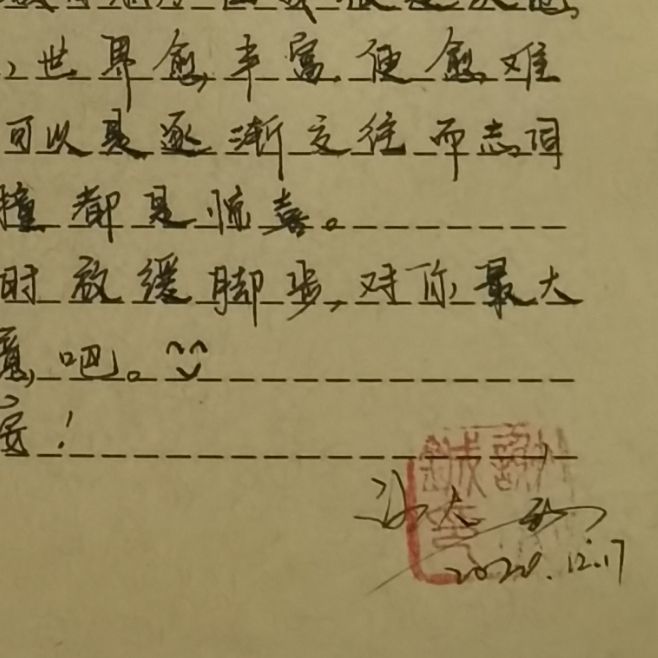 ，世界愈丰富，便愈难
可以是逐渐交往而志同
撞都是惊喜。
时放缓脚步，对你最大
意吧。^^
安！
2020.12.17